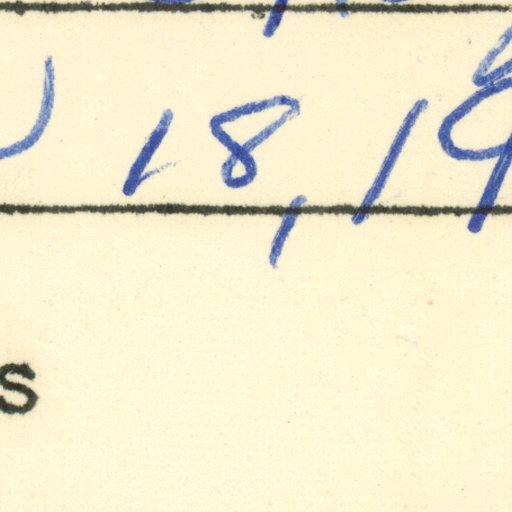 18, 19
s